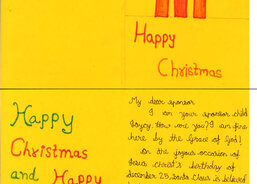 Happy
Christmas
Happy
Christmas
and Happy
My dear sponsor
I am your sponsor child
How are you? I am fine
here by the Grace of God!
On the joyous occasion of
Jesus Christ's birthday of
december 25, Santa Claus is believed